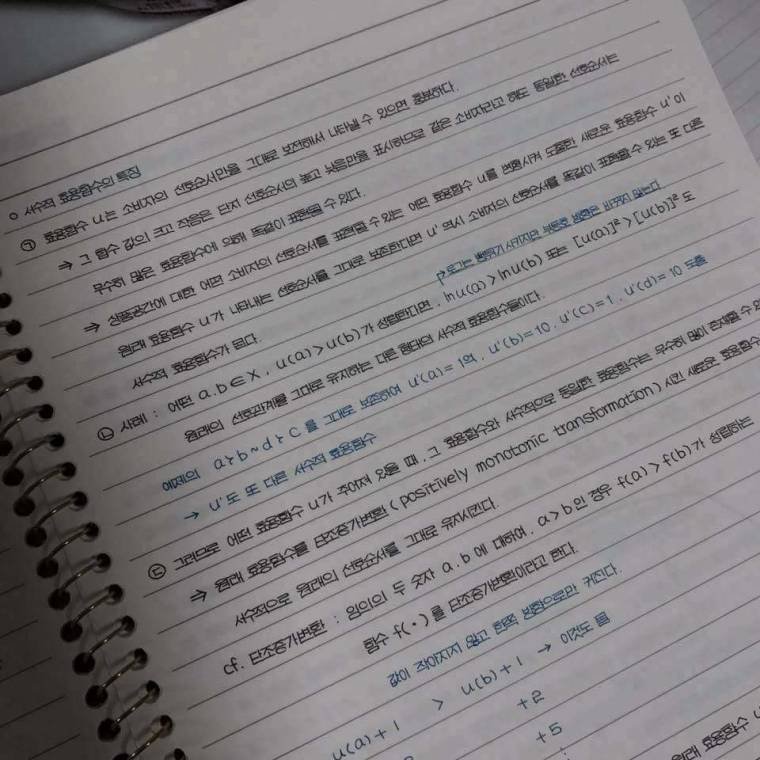 o 서수적 효용함수의 특징
㉠ 효용함수 u는 소비자의 선호순서만을 그대로 보전해서 나타낼 수 있으면 충분하다.
⇒ 그 함수 값의 크고 작음은 단지 선호순서의 높고 낮음만을 표시하므로 같은 소비자라고 해도 동일한 선호순서는
무수히 많은 효용함수에 의해 똑같이 표현될 수 있다.
⇒ 상품공간에 대한 어떤 소비자의 선호순서를 표현할 수 있는 어떤 효용함수 u를 변형시켜 도출한 새로운 효용함수 u'이
원래 효용함수 u가 나타내는 선호순서를 그대로 보존한다면 u' 역시 소비자의 선호순서를 똑같이 표현할 수 있는 또 다른
서수적 효용함수가 된다.
로그는 변형시키지만 부등호 방향은 바뀌지 않는다
㉡ 사례 : 어떤 a.b∈X, u(a)>u(b)가 성립한다면, lnu(a)>lnu(b) 또는 [u(a)]²>[u(b)]²도
원래의 선호관계를 그대로 유지하는 다른 형태의 서수적 효용함수들이다.
예제의 a≻b~d≻c 를 그대로 보존하여 u'(a)=19, u'(b)=10, u'(c)=1, u'(d)=10 도출
→ u'도 또 다른 서수적 효용함수
㉢ 그러므로 어떤 효용함수 u가 주어져 있을 때, 그 효용함수와 서수적으로 동일한 효용함수는 무수히 많이 존재할 수 있
⇒ 원래 효용함수를 단조증가변환(positively monotonic transformation)시킨 새로운 효용함수
서수적으로 원래의 선호순서를 그대로 유지시킨다.
cf. 단조증가변환 : 임의의 두 숫자 a.b에 대하여, a>b인 경우 f(a)>f(b)가 성립하는
함수 f(·)를 단조증가변환이라고 한다.
값이 작아지지 않고 한쪽 방향으로만 커진다.
u(a)+1 > u(b)+1 → 이것도 됨
+2
+5
원래 효용함수